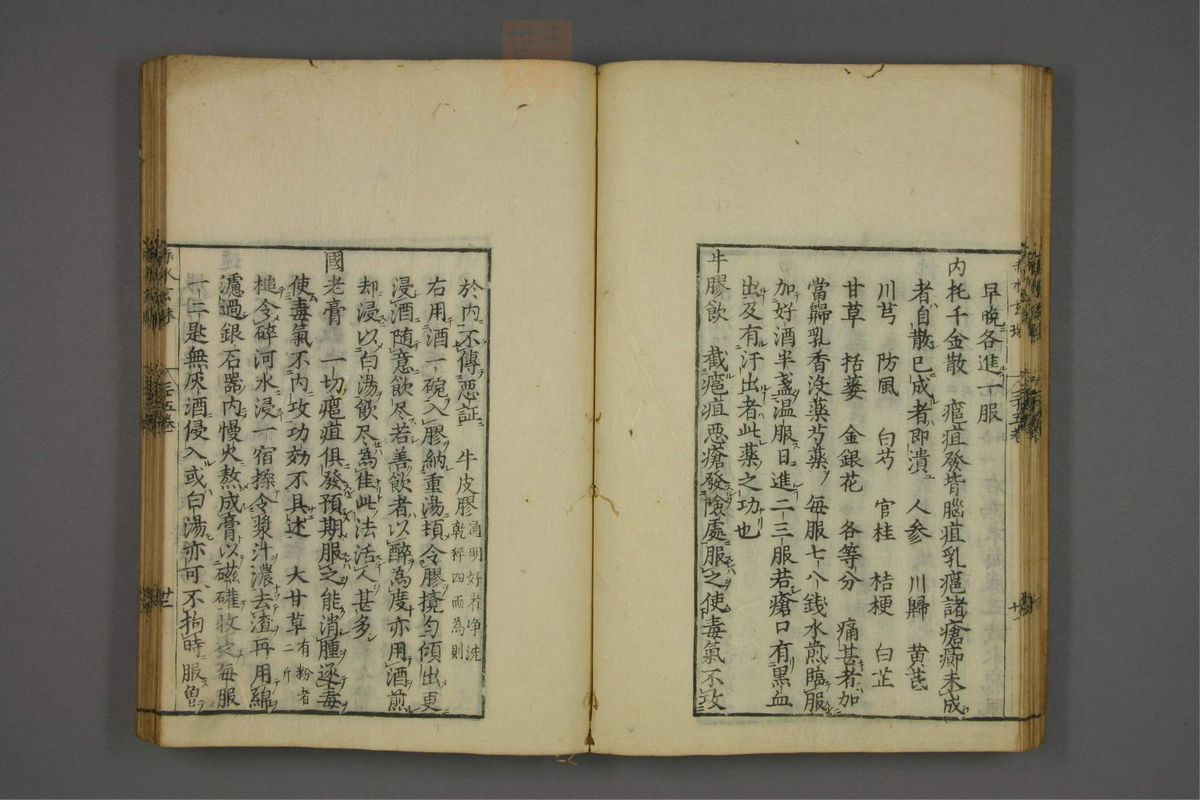 早晩各進一服
内托千金散　癰疽發背腦疽乳癰諸瘡癤未成
者自散已成者即潰　人参　川歸　黄芪
川芎　防風　白芍　官桂　桔梗　白芷
甘草　括蔞　金銀花　各等分　痛甚者加
當歸乳香沒薬芍薬　毎服七八銭水煎臨服
加好酒半盞温服日進二三服若瘡口有黒血
出及有汗出者此薬之功也
牛膠飲　截癰疽惡瘡發險處服之使毒氣不攻
於内不傳惡証　牛皮膠通明好者浄洗乾秤四兩為則
右用酒一碗入膠納重湯頓令膠攪勻傾出更
浸酒随意飲尽若善飲者以醉為度亦用酒煎
却浸以白湯飲尽為佳此法活人甚多
國老膏　一切癰疽俱發預期服之能消腫逐毒
使毒氣不内攻功効不具述　大甘草有粉者二斤
槌令碎河水浸一宿揉令漿汁濃去渣再用綿
濾過銀石器内慢火熬成膏以磁礶收之毎服
一二匙無灰酒侵入或白湯亦可不拘時服曽